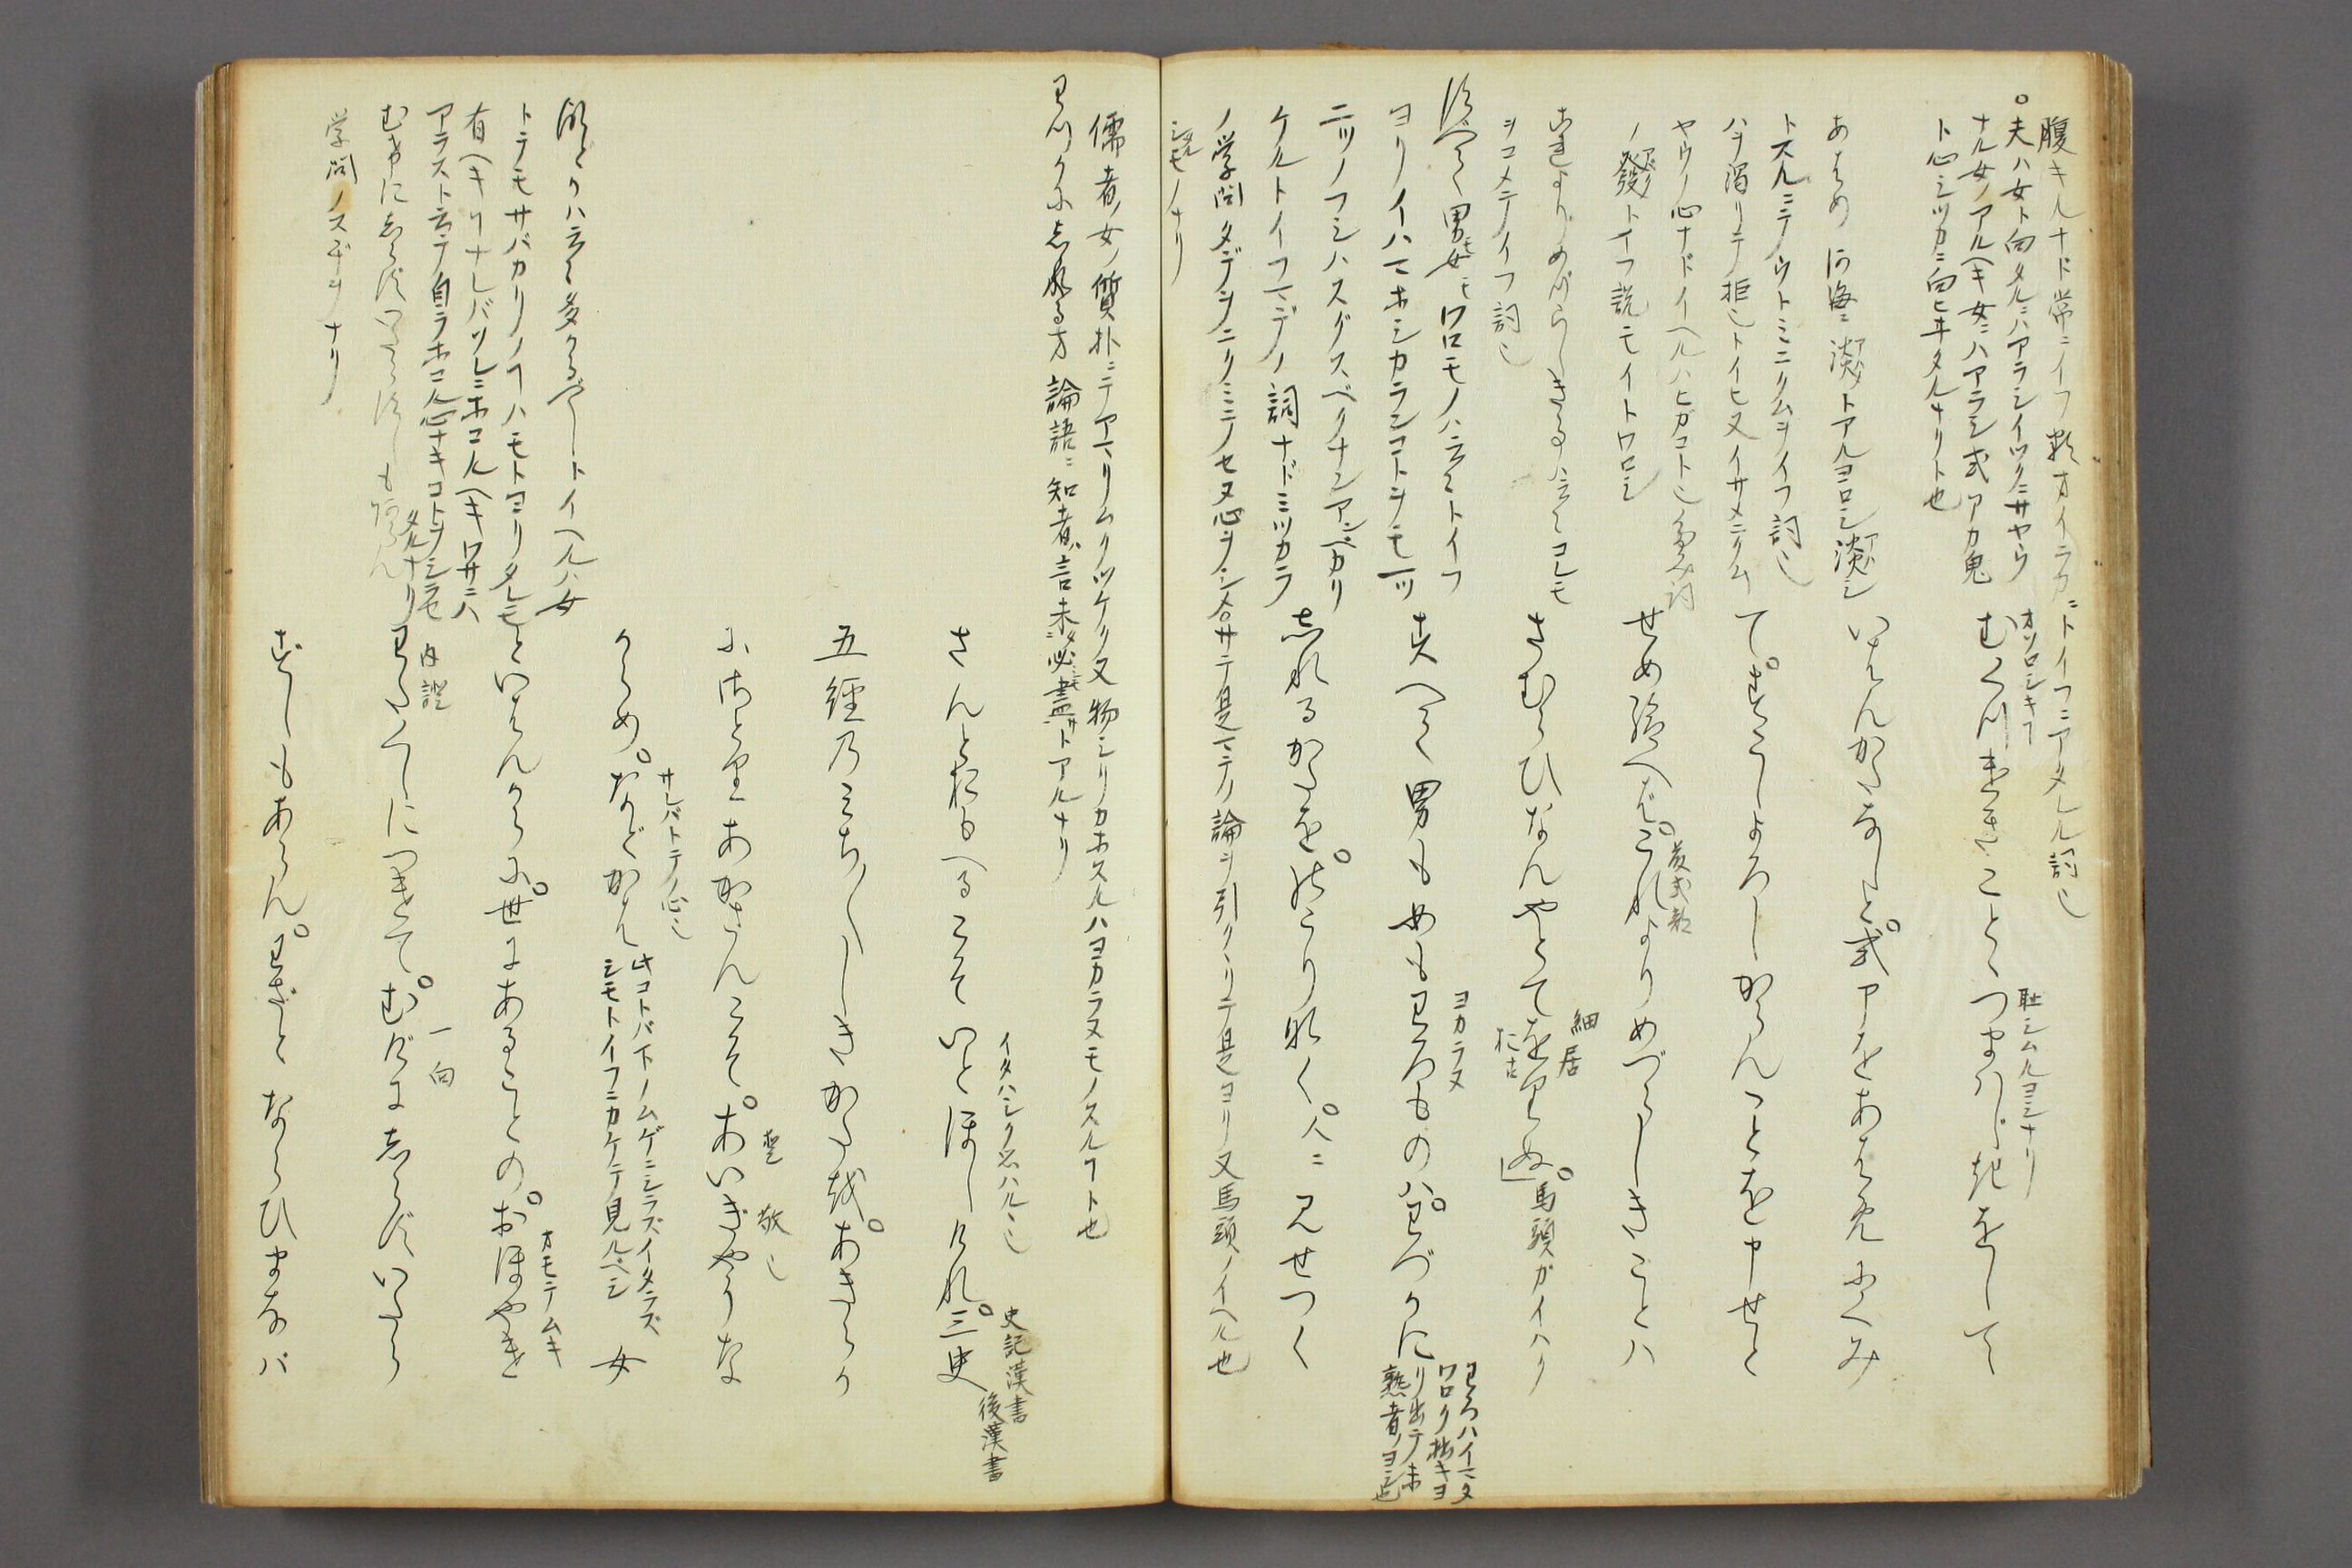 腹キルナド常ニイフ類オイラカニトイフニアタレル詞也
○夫ハ女ト向タルニハアラシイツクニサヤウ
ナル女ノアルヘキ女ニハアラシ式ア力鬼
ト心シツカニ向ヒヰタルナリト也
オソロシキ
むくつけきことゝつまはじきをして
耻シムルヨシナリ
あはめ 河海ニ淡メトアルヨロシ淡シ
トスルニテウトミニクムヲイフ詞也
ハヲ濁リテ拒ムトイヒ又イサメニクム
ヤウノ心ナドイヘルハヒガコト也
ノ發トイフ説モイトワロシ
いはんかたなしと。式アをあはめにくみ
て。すこしよろしからんことを申せと
せめ給へど。これよりめづらしきことハ
是よりめづらしきことハ云々コレモ
ヲコメテイフ詞也
さむらひなんやとてをり。馬頭ガイハク
すべて男モ女モワロモノハ云々トイフ
ヨリイハマホシカランコトヲモ一ツ
二ツノフシハスグスベクナンアンベカリ
ケルトイフマデノ詞ナドミツカラ
ノ学問タデヲニクミニノセヌ心ヲシメ合サテ是マテノ論ヲ引クヽリテ是ヨリ又馬頭ノイヘル也
シルモノナリ
ヨカラヌ
すへて男も女もわろものハ。わづかに
わろハイマタ
ワロク拙キヨ
リ出テ未
熟者ノヨシ也
しれるかたを。のこりなく。人ニ見せつく
儒者ノ女ノ質朴ニテアマリムクツケク又物シリカホスルハヨカラヌモノスルヿト也
わづかにしれる方 論語ニ知者ハ言未必盡サトアルナリ
さんとおもへるこそいとほしけれ。三史
イタハシク思ハルヽ也
史記漢書
後漢書
五經のみち〳〵しきかたを。あきらか
にさとりあかさんこそ。あいぎやうな
愛敬也
からめ。などかは 女
サレバトテノ心也
此コトバ下ノムゲニシラズイタラズ
シモトイフニカケテ見ルベシ
などかハ云々多かるべしトイヘルハ女
トテモサバカリノヿハモトヨリタレモ
有ヘキヿナレバソレニホコルヘキワサニハ
アラスト云テ自ラホコル心ナキコトヲシラセ
タルナリ
といはんからに。世にあることの。おほやけ
オモテムキ
わたくしにつけて。むげにしらずいたら
内證
一向
むげにしらずいたらずしもあらん
学問ノスヂヲナリ
ずしもあらん。わざとならひまなバ